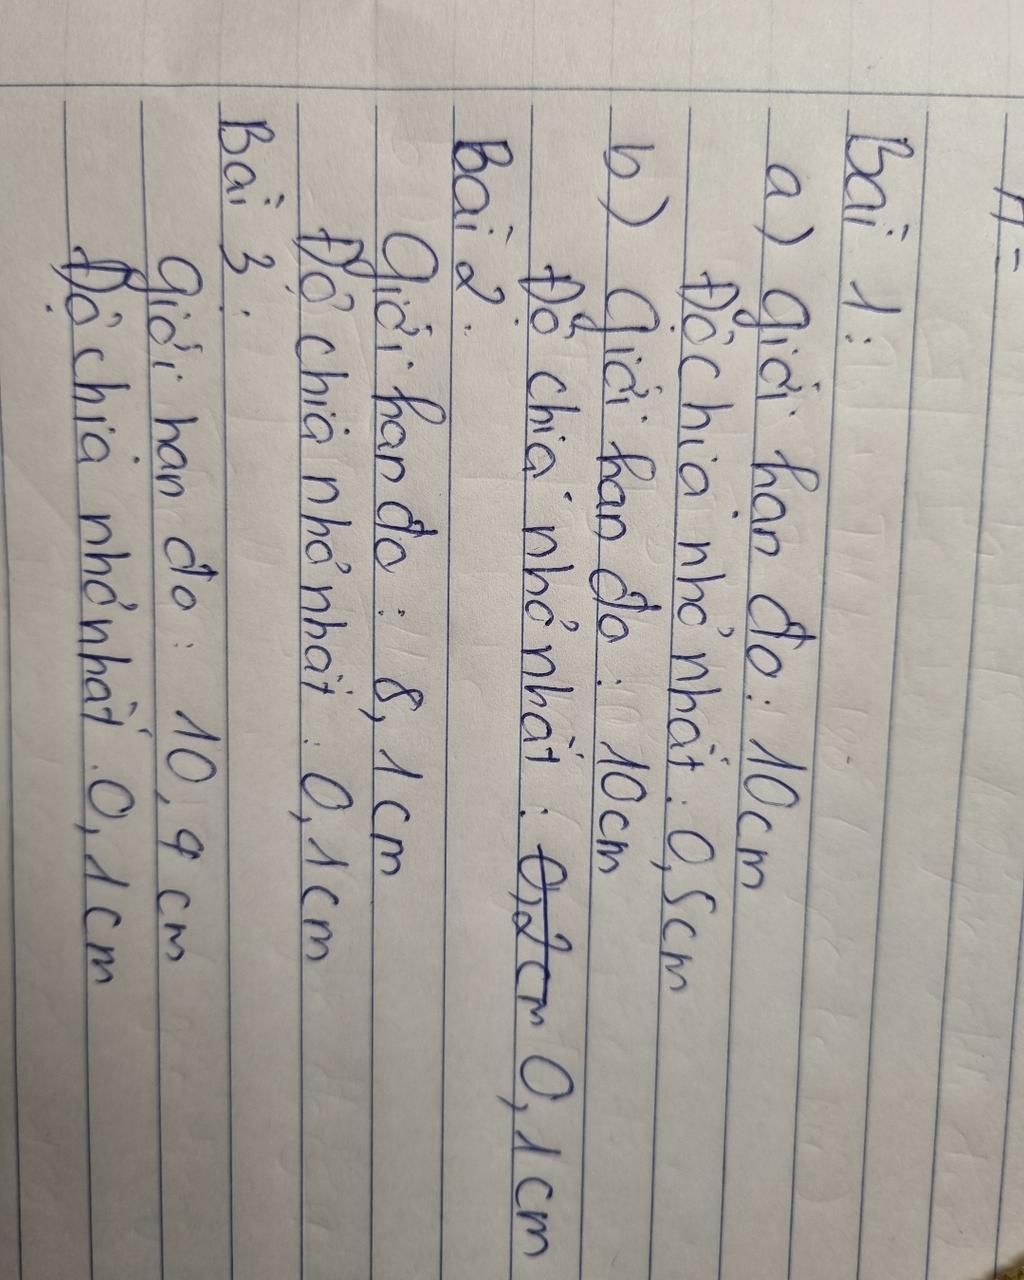 Bài 1:
a) Giới hạn đo: 10cm
Độ chia nhỏ nhất: 0,5cm
b) Giới hạn đo: 10cm
Độ chia nhỏ nhất: 0,2cm 0,1cm
Bài 2:
Giới hạn đo: 8,1cm
Độ chia nhỏ nhất: 0,1cm
Bài 3:
Giới hạn đo: 10,9cm
Độ chia nhỏ nhất: 0,1cm